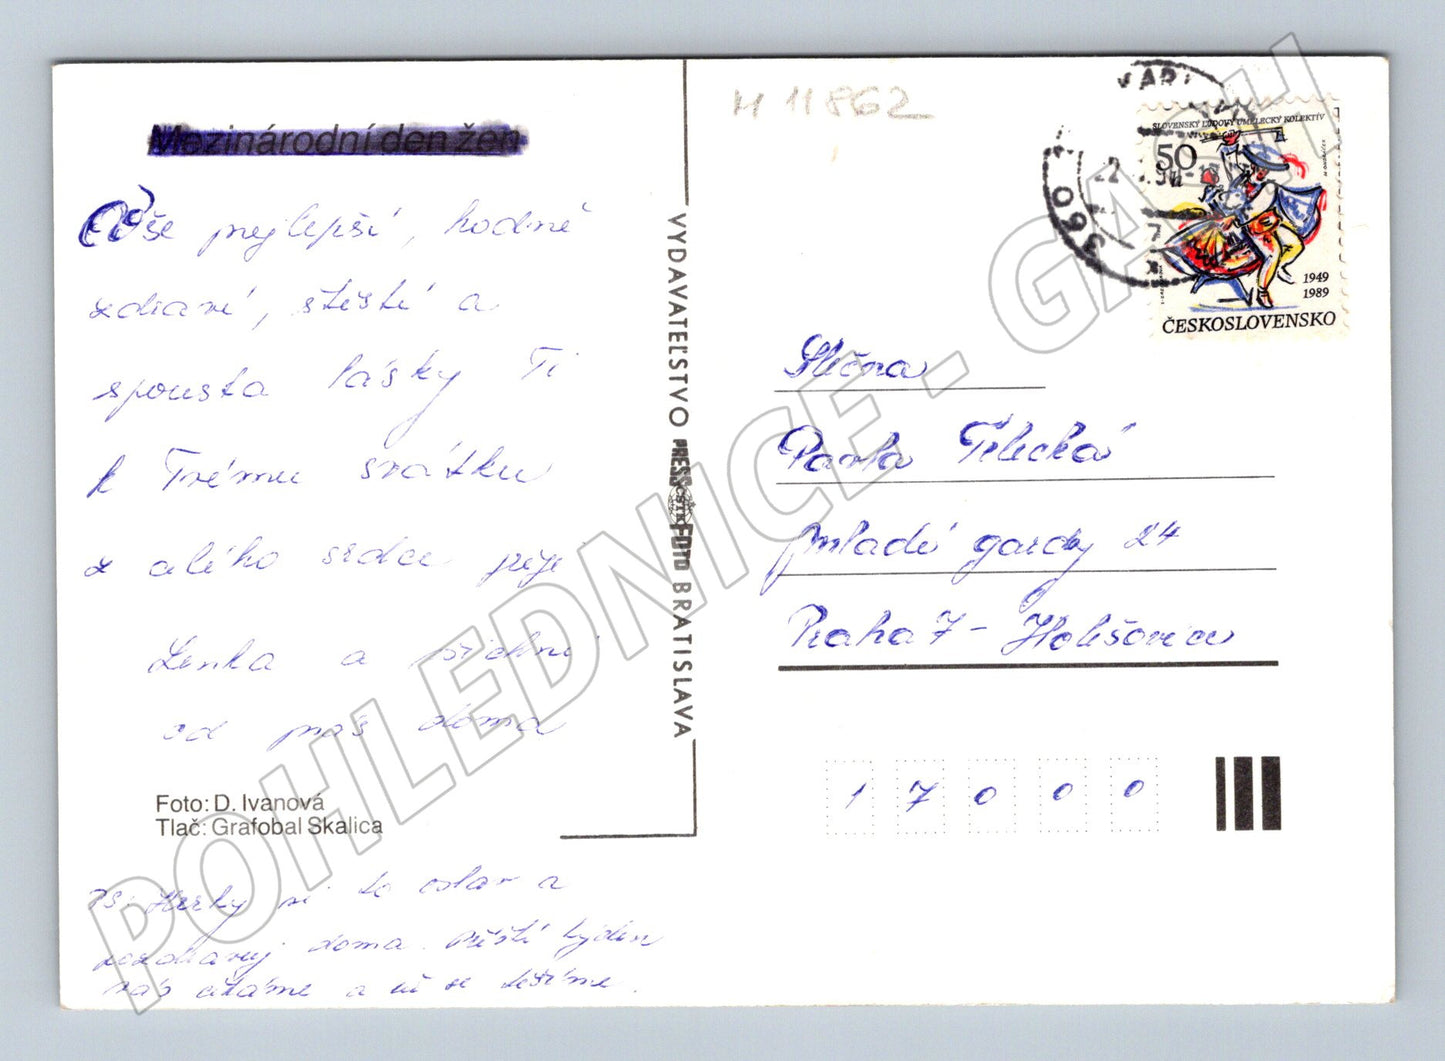 Mezinárodní den žen
Vše nejlepší, hodně
zdraví, štěstí a
spousta lásky Ti
k Tvému svátku
z celého srdce přeje
Lenka a všichni
od nás doma
Foto: D. Ivanová
Tlač: Grafobal Skalica
PS: Hezky si to oslav a
pozdravuj doma. Příští týden
vás čekáme a už se těšíme.
VYDAVATEĽSTVO PRESSFOTO BRATISLAVA
ČSTK
M 11862
VARY
360
SLOVENSKÝ ĽUDOVÝ UMELECKÝ KOLEKTÍV
50
1949
1989
ČESKOSLOVENSKO
Slečna
Pavla Telecká
Mladé gardy 24
Praha 7 - Holešovice
17000
POHLEDNICE - GASH